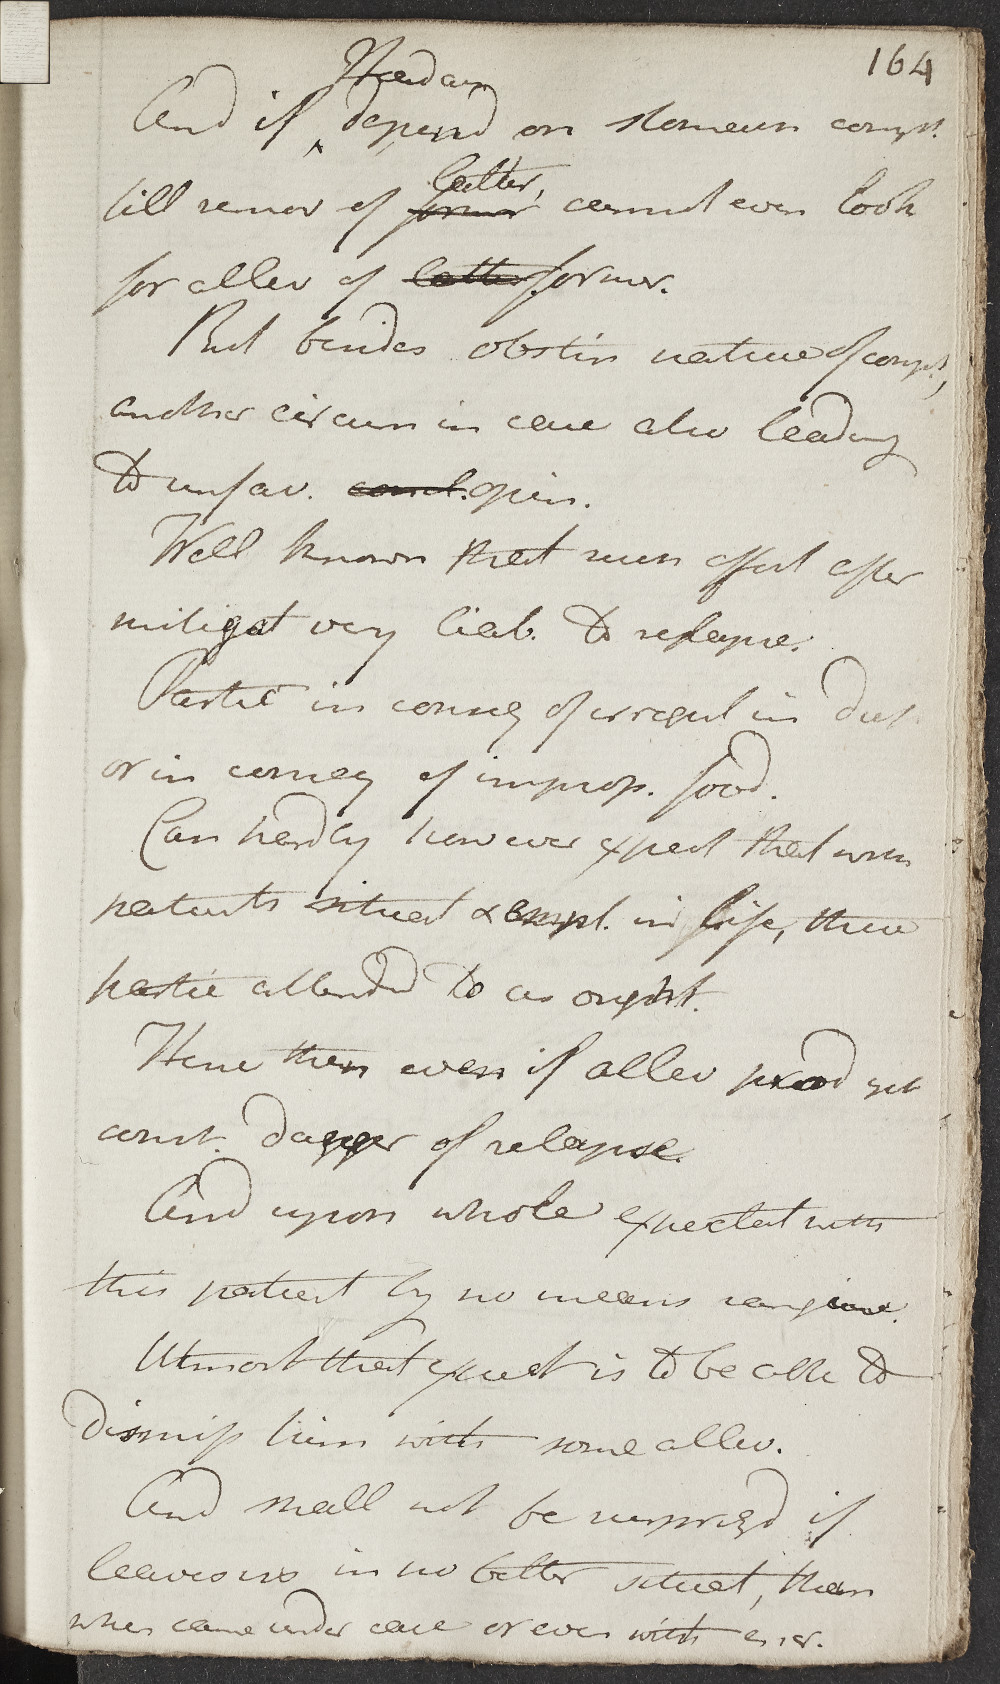 164
Headac
And if depend on stomach compt.
latter,
till remov of former cannot even look
for allev of latter former.
But besides obstin nature of compt,
another circum in case also leading
to unfav. concl. opin.
Well known that even after
mitigat very liab. to relapse.
Partic in conseq of irregul in diet
or in conseq of improp. food.
Can hardly however expect that when
patients situat & empl. in life, these
partic attended to as ought.
Hence then even if allev prod yet
const. danger of relapse.
And upon whole expectat with
this patient by no means sanguine.
Utmost that expect is to be able to
dismiss him with some allev.
And shall not be surprized if
leaves us in no better situat, than
when came under care or even with